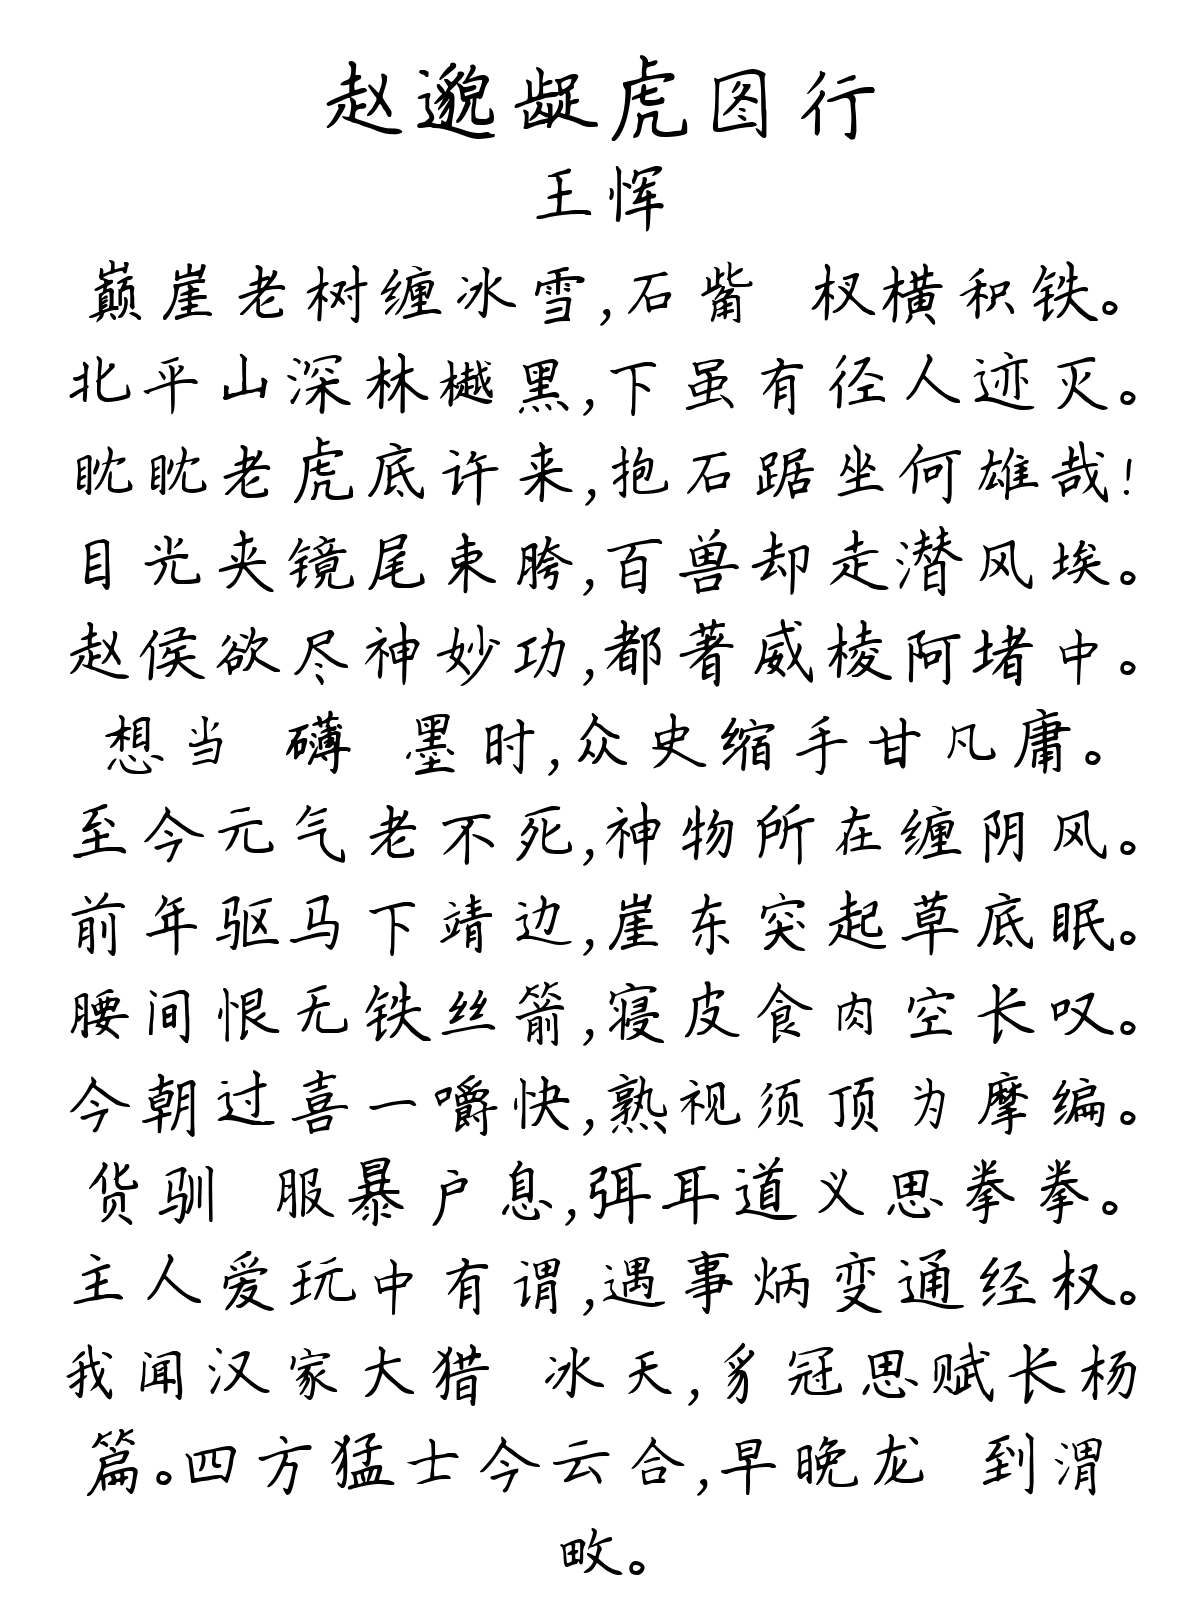 赵邈龊虎图行
王恽
巅崖老树缠冰雪,石觜 杈横积铁。
北平山深林樾黑,下虽有径人迹灭。
眈眈老虎底许来,抱石踞坐何雄哉!
目光夹镜尾束胯,百兽却走潜风埃。
赵侯欲尽神妙功,都著威棱阿堵中。
想当 礴 墨时,众史缩手甘凡庸。
至今元气老不死,神物所在缠阴风。
前年驱马下靖边,崖东突起草底眠。
腰间恨无铁丝箭,寝皮食肉空长叹。
今朝过喜一嚼快,熟视须顶为摩编。
货驯 服暴户息,弭耳道义思拳拳。
主人爱玩中有谓,遇事炳变通经权。
我闻汉家大猎 冰天,豸冠思赋长杨
篇。四方猛士今云合,早晚龙 到渭
畋。